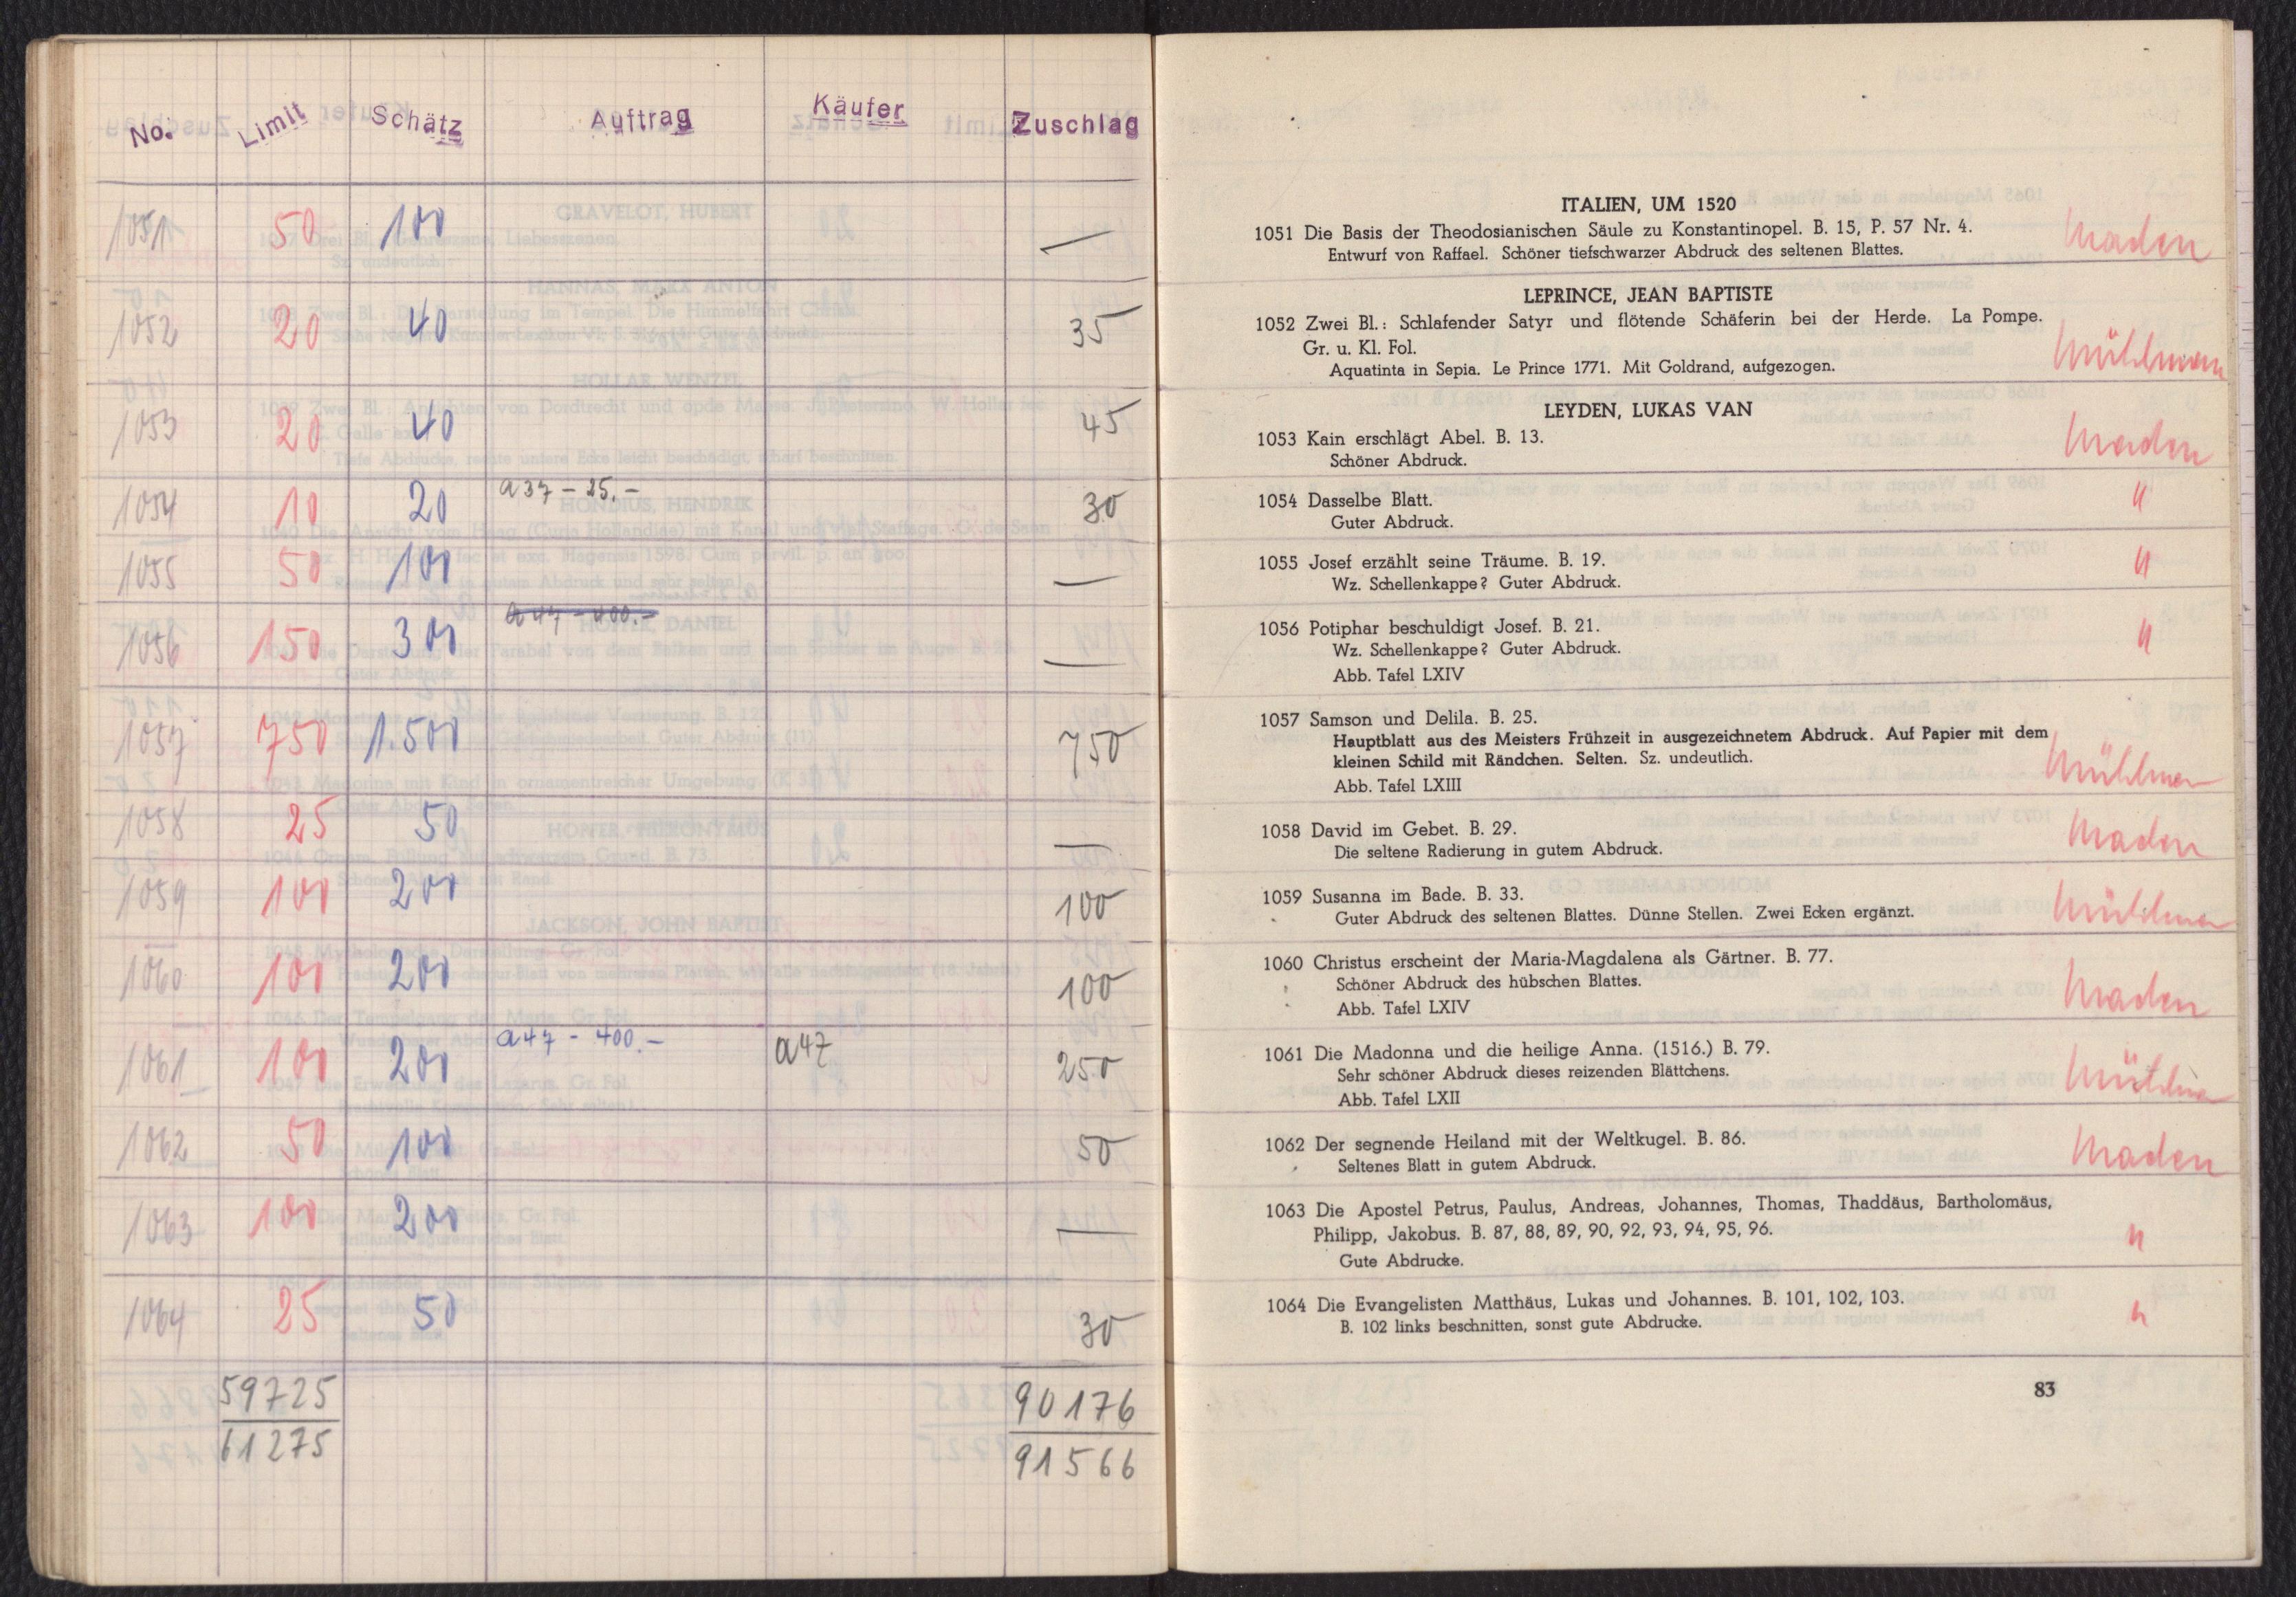 No. Limit Schätz Auftrag Käufer Zuschlag
1051 50 100 —
1052 20 40 35
1053 20 40 45
1054 10 20 a 37 – 25.– 30
1055 50 100 —
1056 150 300 a 47 – 400.– —
1057 750 1.500 750
1058 25 50 —
1059 100 200 100
1060 100 200 100
1061 100 200 a 47 – 400.– a 47 250
1062 50 100 50
1063 100 200 —
1064 25 50 30
59725 90176
61275 91566
ITALIEN, UM 1520
1051 Die Basis der Theodosianischen Säule zu Konstantinopel. B. 15, P. 57 Nr. 4. Maden
Entwurf von Raffael. Schöner tiefschwarzer Abdruck des seltenen Blattes.
LEPRINCE, JEAN BAPTISTE
1052 Zwei Bl.: Schlafender Satyr und flötende Schäferin bei der Herde. La Pompe.
Gr. u. Kl. Fol. Mühlman
Aquatinta in Sepia. Le Prince 1771. Mit Goldrand, aufgezogen.
LEYDEN, LUKAS VAN
1053 Kain erschlägt Abel. B. 13. Maden
Schöner Abdruck.
1054 Dasselbe Blatt. "
Guter Abdruck.
1055 Josef erzählt seine Träume. B. 19. "
Wz. Schellenkappe? Guter Abdruck.
1056 Potiphar beschuldigt Josef. B. 21. "
Wz. Schellenkappe? Guter Abdruck.
Abb. Tafel LXIV
1057 Samson und Delila. B. 25.
Hauptblatt aus des Meisters Frühzeit in ausgezeichnetem Abdruck. Auf Papier mit dem
kleinen Schild mit Rändchen. Selten. Sz. undeutlich. Mühlman
Abb. Tafel LXIII
1058 David im Gebet. B. 29. Maden
Die seltene Radierung in gutem Abdruck.
1059 Susanna im Bade. B. 33. Mühlman
Guter Abdruck des seltenen Blattes. Dünne Stellen. Zwei Ecken ergänzt.
1060 Christus erscheint der Maria-Magdalena als Gärtner. B. 77.
Schöner Abdruck des hübschen Blattes. Maden
Abb. Tafel LXIV
1061 Die Madonna und die heilige Anna. (1516.) B. 79.
Sehr schöner Abdruck dieses reizenden Blättchens. Mühlman
Abb. Tafel LXII
1062 Der segnende Heiland mit der Weltkugel. B. 86. Maden
Seltenes Blatt in gutem Abdruck.
1063 Die Apostel Petrus, Paulus, Andreas, Johannes, Thomas, Thaddäus, Bartholomäus,
Philipp, Jakobus. B. 87, 88, 89, 90, 92, 93, 94, 95, 96. "
Gute Abdrucke.
1064 Die Evangelisten Matthäus, Lukas und Johannes. B. 101, 102, 103. "
B. 102 links beschnitten, sonst gute Abdrucke.
83